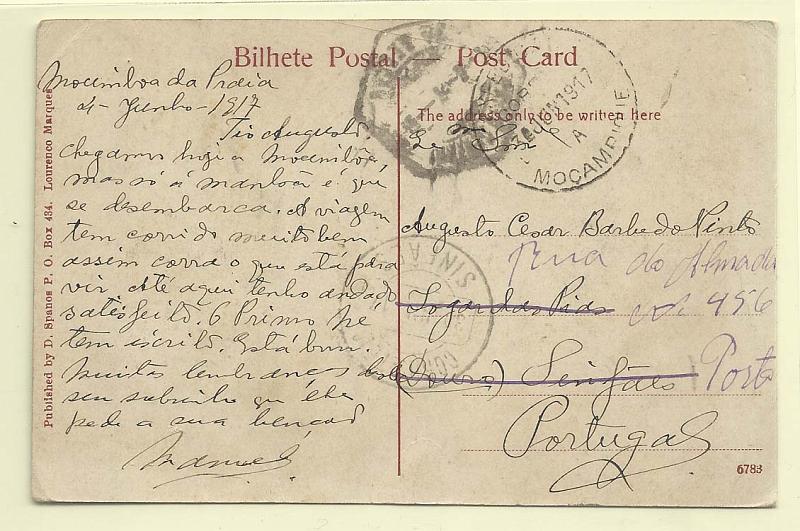 Bilhete Postal — Post Card
The address only to be written here
Published by D. Spanos P. O. Box 434. Lourenco Marques
Mocimboa da Praia
4-Junho-1917
Tio Augusto
Chegamos hoje a Mocimboa
mas só á manhãa é que
se desembarca. A viagem
tem corrido muito bem
assim corra o que está para
vir. Até aqui tenho andado
satesfeito. O Primo Zé
tem escrito. Está bom.
Muitas lembranças deste
seu sobrinho que lhe
pede a sua benção
Manuel
Augusto Cesar Barbedo Pinto
Rua do Almada
Logar das Pias nº 456
(Douro) Sinfães Porto
Portugal
JUN 1917
A
MOÇAMBIQUE
SINFÃ
6783